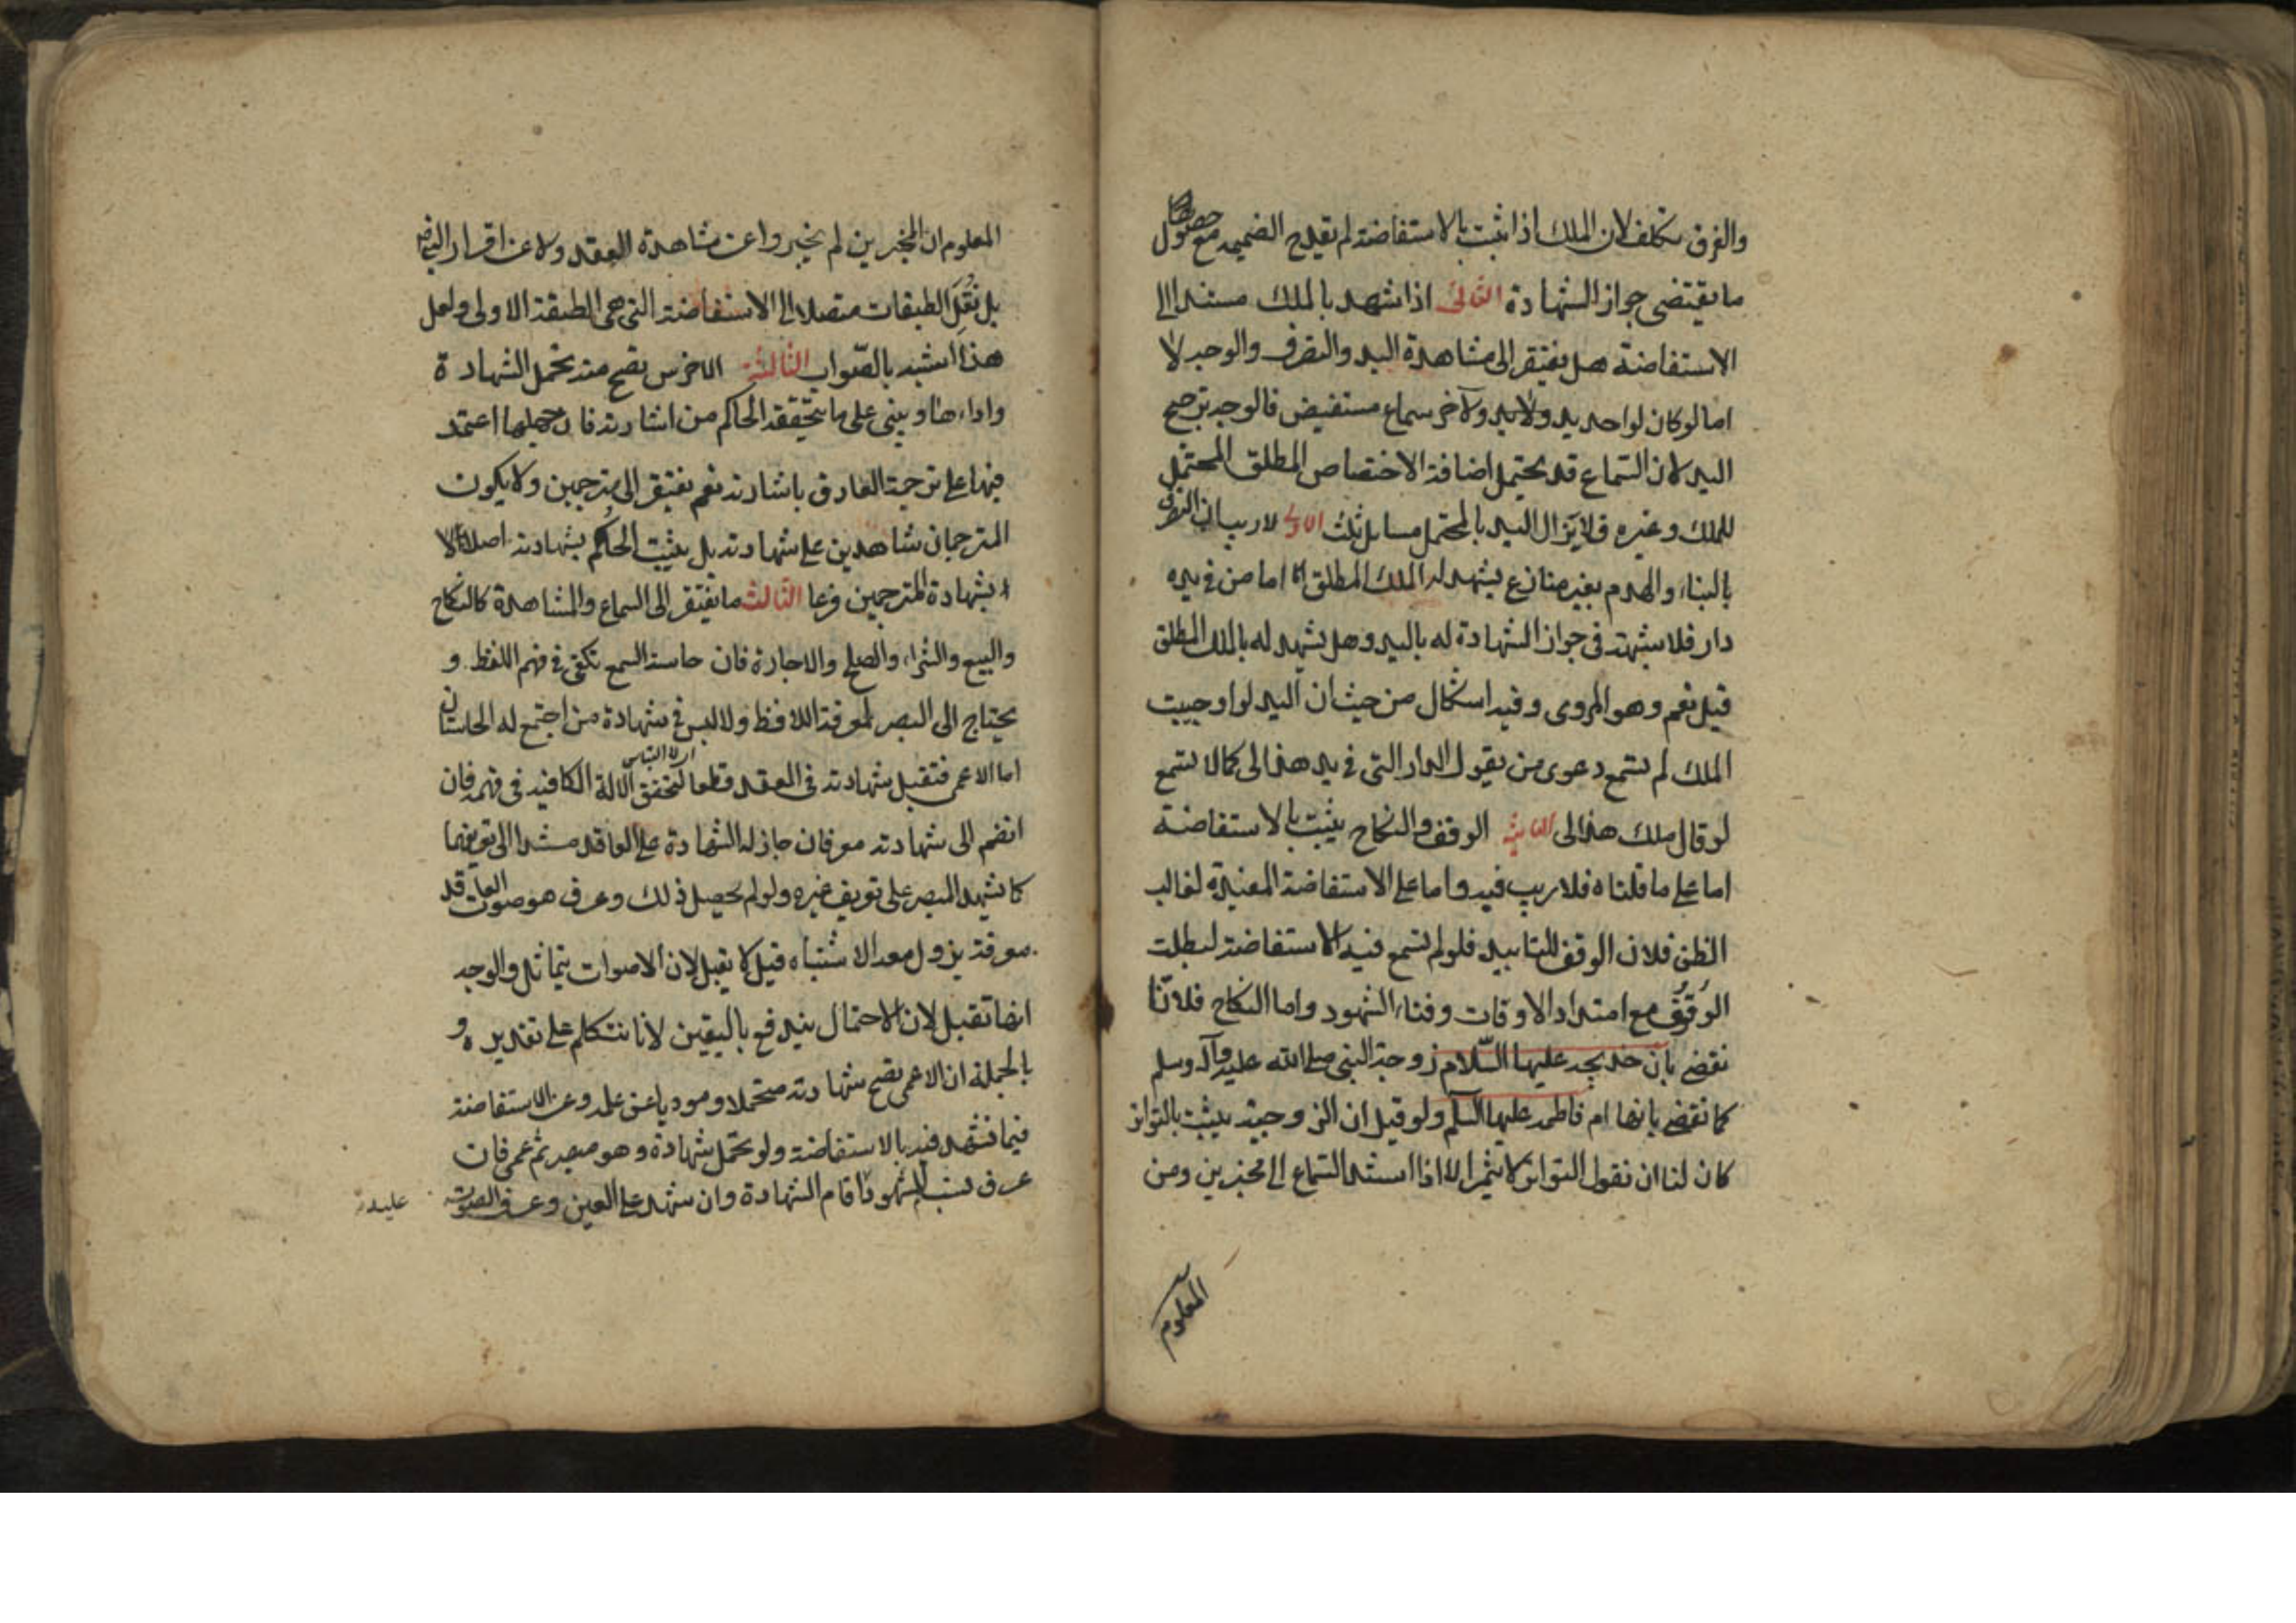 والفرق تكلف لان الملك اذا ثبت بالاستفاضة لم تقدح الضميمه مع حصول
ما يقتضى جواز الشهادة الثانى اذا شهد بالملك مستندا الى
الاستفاضة هل يفتقر الى مشاهدة اليد والتصرف والوجه لا
اما لو كان لواحد يد ولاٰخر سماع مستفيض فالوجه ترجيح
اليد لان السماع قد يحتمل اضافة الاختصاص المطلق المحتمل
للملك وغيره فلا يزال اليد بالمحتمل مسايل ثلث الاولى لا ريب ان التصرف
بالبناء والهدم بغير منازع يشهد له الملك المطلق اما من فى يده
دار فلا شبهة فى جواز الشهادة له باليد وهل يشهد له بالملك المطلق
قيل نعم وهو المروى وفيه اشكال من حيث ان اليد لو اوجبت
الملك لم تسمع دعوى من يقول الدار التى فى يد هذا لى كما لا تسمع
لو قال ملك هذا لى الثانية الوقف والنكاح يثبت بالاستفاضة
اما على ما قلناه فلا ريب فيه واما على الاستفاضة المفيدة لغالب
الظن فلان الوقف للتابيد فلو لم تسمع فيه الاستفاضة لبطلت
الوقوف مع امتداد الاوقات وفناء الشهود واما النكاح فلانا
نقضى بان خديجه عليها السّلام زوجة النبى صلى الله عليه وآله وسلم
كما نقضى بانها ام فاطمه عليها السلم ولو قيل ان الزوجية يثبت بالتواتر
كان لنا ان نقول التواتر لا يثمر الا اذا استند السماع الى مخبرين ومن
المعلوم
المعلوم ان المخبرين لم يخبروا عن مشاهدة العقد ولا عن اقرار النبى
بل نقل الطبقات متصلا الى الاستفاضة التى هى الطبقة الاولى ولعل
هذا اشبه بالصّواب الثالثة الاخرس يصح منه تحمل الشهادة
واداءها ويبنى على ما يتحققه الحاكم من اشارته فان جهلها اعتمد
فيها على ترجمة العارف باشارته نعم يفتقر الى مترجمين ولا يكون
المترجمان شاهدين على شهادته بل يثبت الحكم بشهادته اصلا لا
بشهادة المترجمين فرعا الثالث ما يفتقر الى السماع والمشاهدة كالنكاح
والبيع والشراء والصلح والاجارة فان حاسة السمع تكفى فى فهم اللفظ و
يحتاج الى البصر لمعرفة اللافظ ولا لبس فى شهادة من اجتمع له الحاستان
اما الاعمى فتقبل شهادته فى العقد قطعا لتحقق الالة الكافيه فى فهمه فان
انضم الى شهادته معرفان جاز له الشهادة على العاقد مستندا الى تعريفهما
كما يشهد المبصر على تعريف غيره ولو لم يحصل ذلك وعرف هو صوت العاقد
معرفة يزول معه الاشتباه قيل لا يقبل لان الاصوات يتماثل والوجه
انها تقبل لان الاحتمال يندفع باليقين لانا نتكلم على تقديره و
بالجملة ان الاعمى تصح شهادته متحملا ومودياً عن علمه وعن الاستفاضة
فيما شهد فيه بالاستفاضة ولو تحمل شهادة وهو مبصر ثم عمى فان
عرف نسب المشهود اقام الشهادة وان شهد على العين وعرف الصوت
عليه